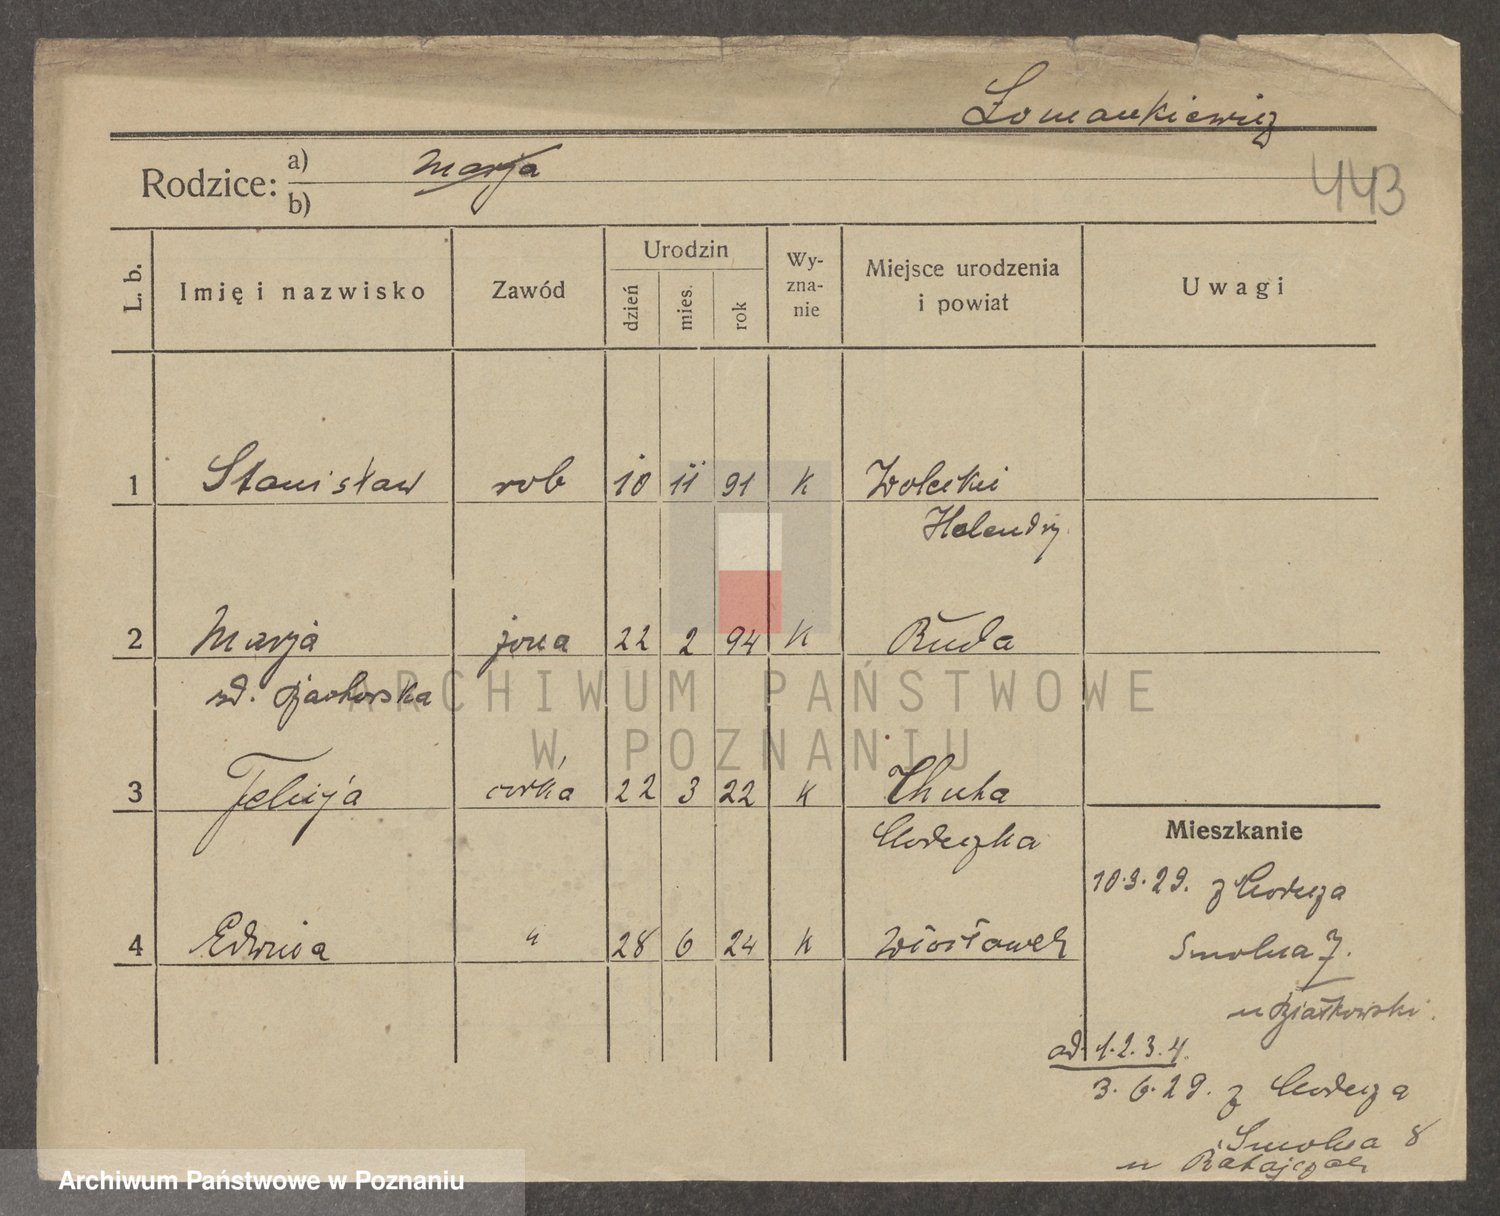 Łomankiewicz
Rodzice: a) Marja
b)
443
L. b.
Imię i nazwisko
Zawód
Urodzin
dzień
mies.
rok
Wy-
zna-
nie
Miejsce urodzenia
i powiat
Uwagi
1 Stanisław rob 10 11 91 K
Holendry
2 Marja żona 22 2 94 K Ruda
3 Felicja córka 22 3 22 K Huta
4 Edwina " 28 6 24 K
Mieszkanie
10.3.29. z
Smolna 7.
u
ad. 1.2.3.4.
3.6.29. z
Smolna 8
u Ratajczak
ARCHIWUM PAŃSTWOWE
W POZNANIU
Archiwum Państwowe w Poznaniu